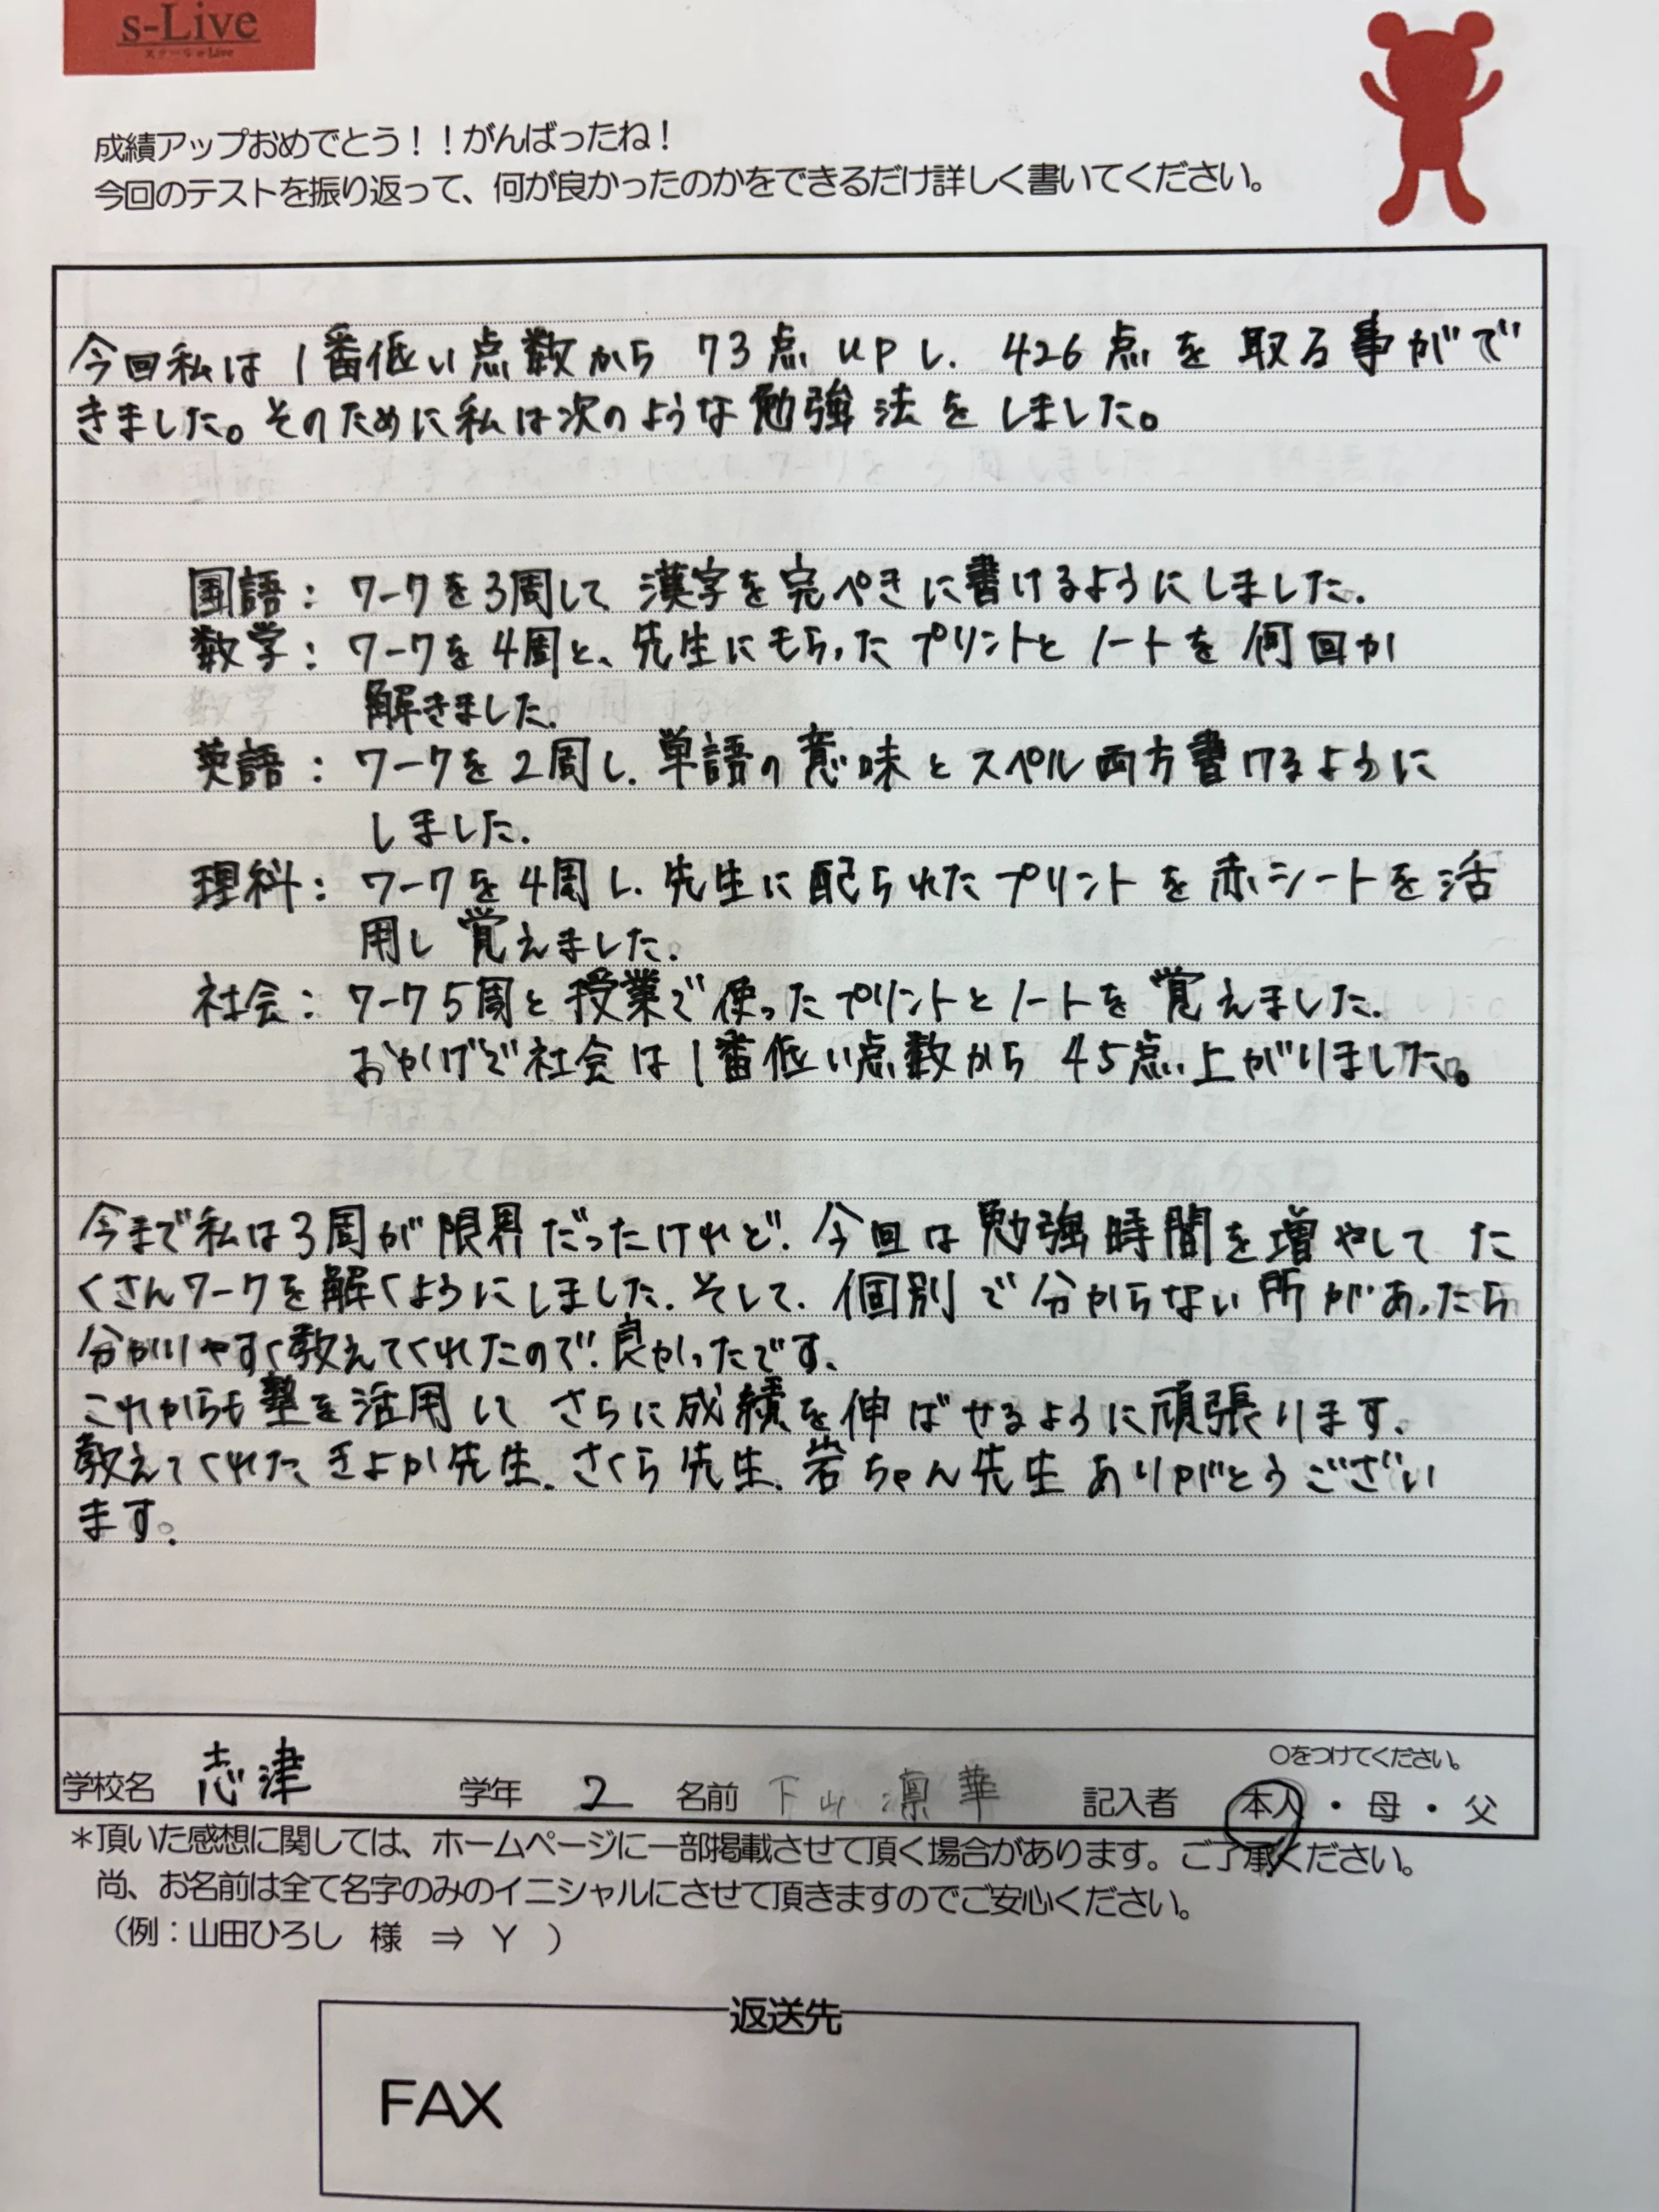 s-Live
スクールe-Live
成績アップおめでとう！！がんばったね！
今回のテストを振り返って、何が良かったのかをできるだけ詳しく書いてください。
今回私は1番低い点数から 73点 upし、426点を取る事がで
きました。そのために私は次のような勉強法をしました。
国語：ワークを3周して、漢字を完ぺきに書けるようにしました。
数学：ワークを4周と、先生にもらったプリントとノートを何回か
解きました。
英語：ワークを2周し、単語の意味とスペル両方書けるように
しました。
理科：ワークを4周し、先生に配られたプリントを赤シートを活
用し覚えました。
社会：ワーク5周と授業で使ったプリントとノートを覚えました。
おかげで社会は1番低い点数から45点上がりました。
今まで私は3周が限界だったけれど、今回は勉強時間を増やしてた
くさんワークを解くようにしました。そして、個別で分からない所があったら
分かりやすく教えてくれたので、良かったです。
これからも塾を活用して さらに成績を伸ばせるように頑張ります。
教えてくれたきよか先生、さくら先生、岩ちゃん先生ありがとうござい
ます。
○をつけてください。
学校名 志津 学年 2 名前 下山 凛華 記入者 本人・母・父
＊頂いた感想に関しては、ホームページに一部掲載させて頂く場合があります。ご了承ください。
尚、お名前は全て名字のみのイニシャルにさせて頂きますのでご安心ください。
（例：山田ひろし 様 ⇒ Y ）
返送先
FAX